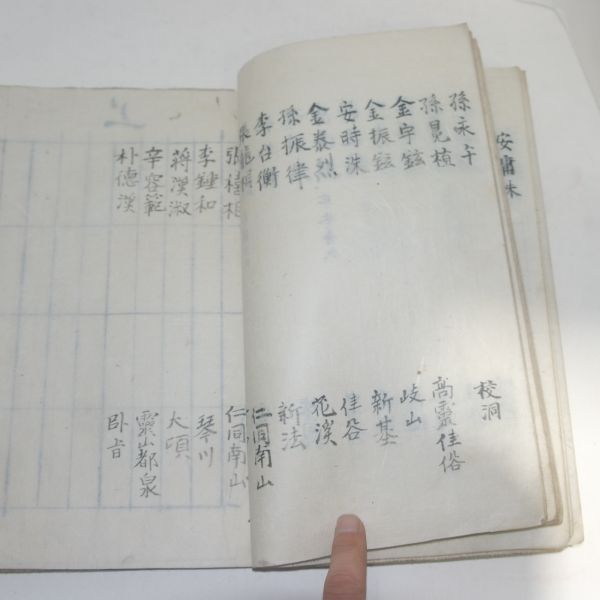 安肅洙
孫永午 校洞
孫晃楨 高靈佳俗
金宇鉉 岐山
金振鉉 新基
安時洙 佳谷
金泰烈 花溪
孫振律 新法
李台衡 仁同南山
仁同南山
李鍾和 琴川
蔣漢淑 大項
辛容範 靈山都泉
朴德漢 卧旨